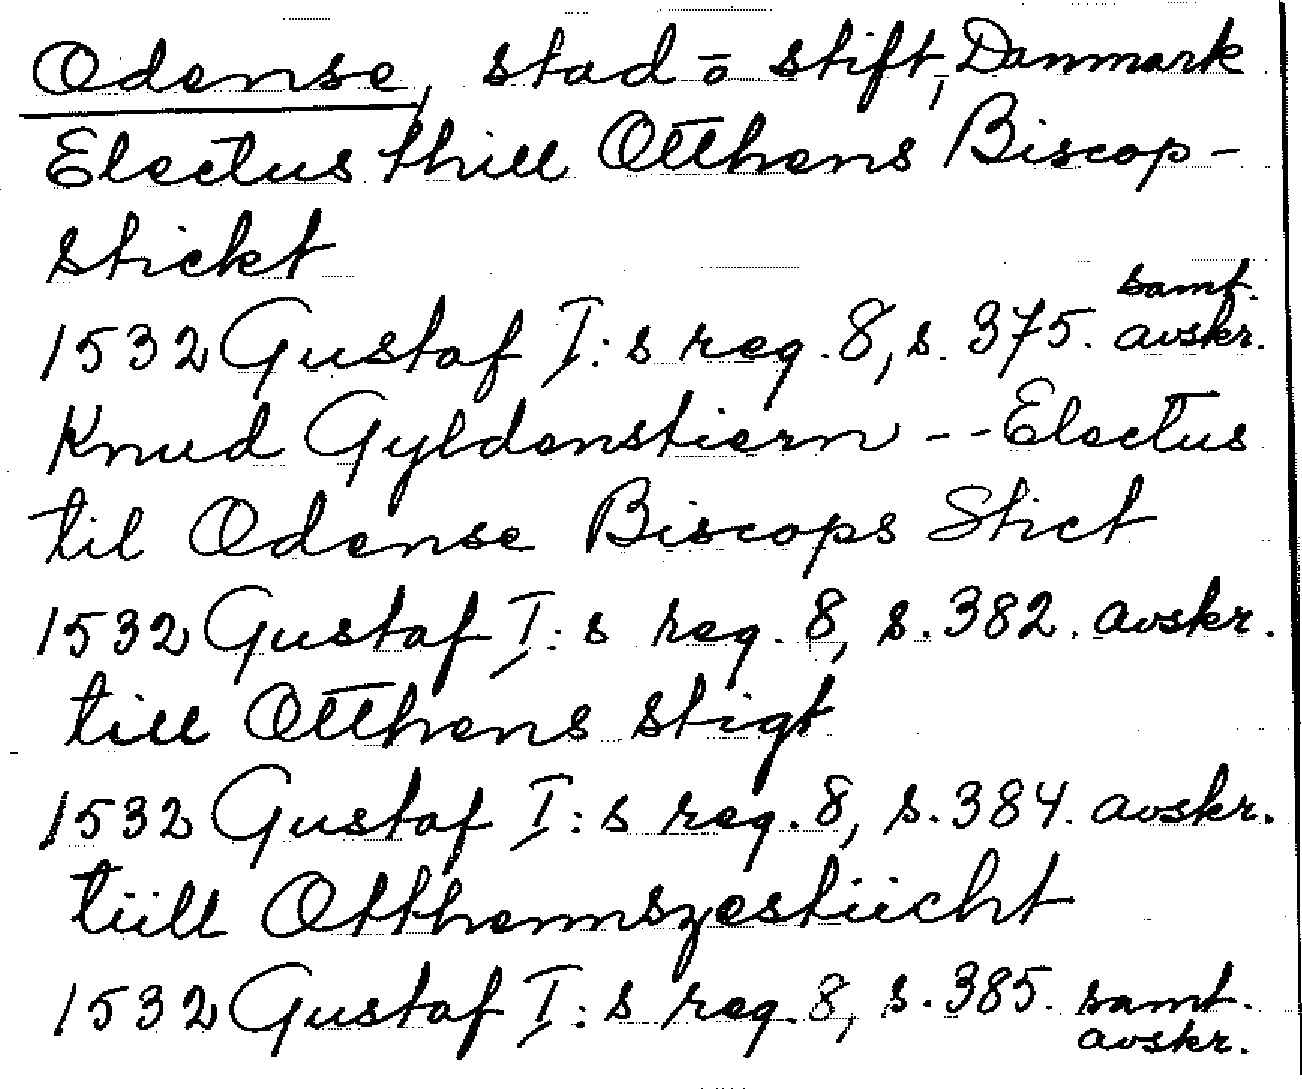 Odense, stad o stift, Danmark
Electus thill Otthens Biscop-
stickt
1532 Gustaf I:s reg. 8, s. 375. samt. avskr.
Knud Gyldenstiern -- Electus
til Odense Biscops Stict
1532 Gustaf I:s reg. 8, s. 382. avskr.
till Otthens stigt
1532 Gustaf I:s reg. 8, s. 384. avskr.
tiill Otthennszestiicht
1532 Gustaf I:s reg. 8, s. 385. samt. avskr.